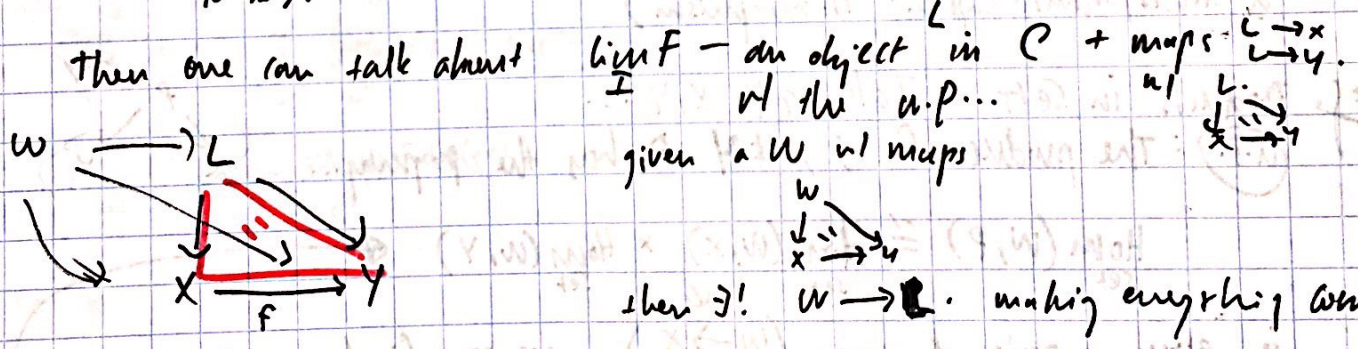 then one can talk about lim F — an object L in C + maps L → X
I L → Y.
w/ the u.p... w/ L
X → Y
given a W w/ maps
W → L
W
X → Y
X → Y
f
then ∃! W → L. making everything com